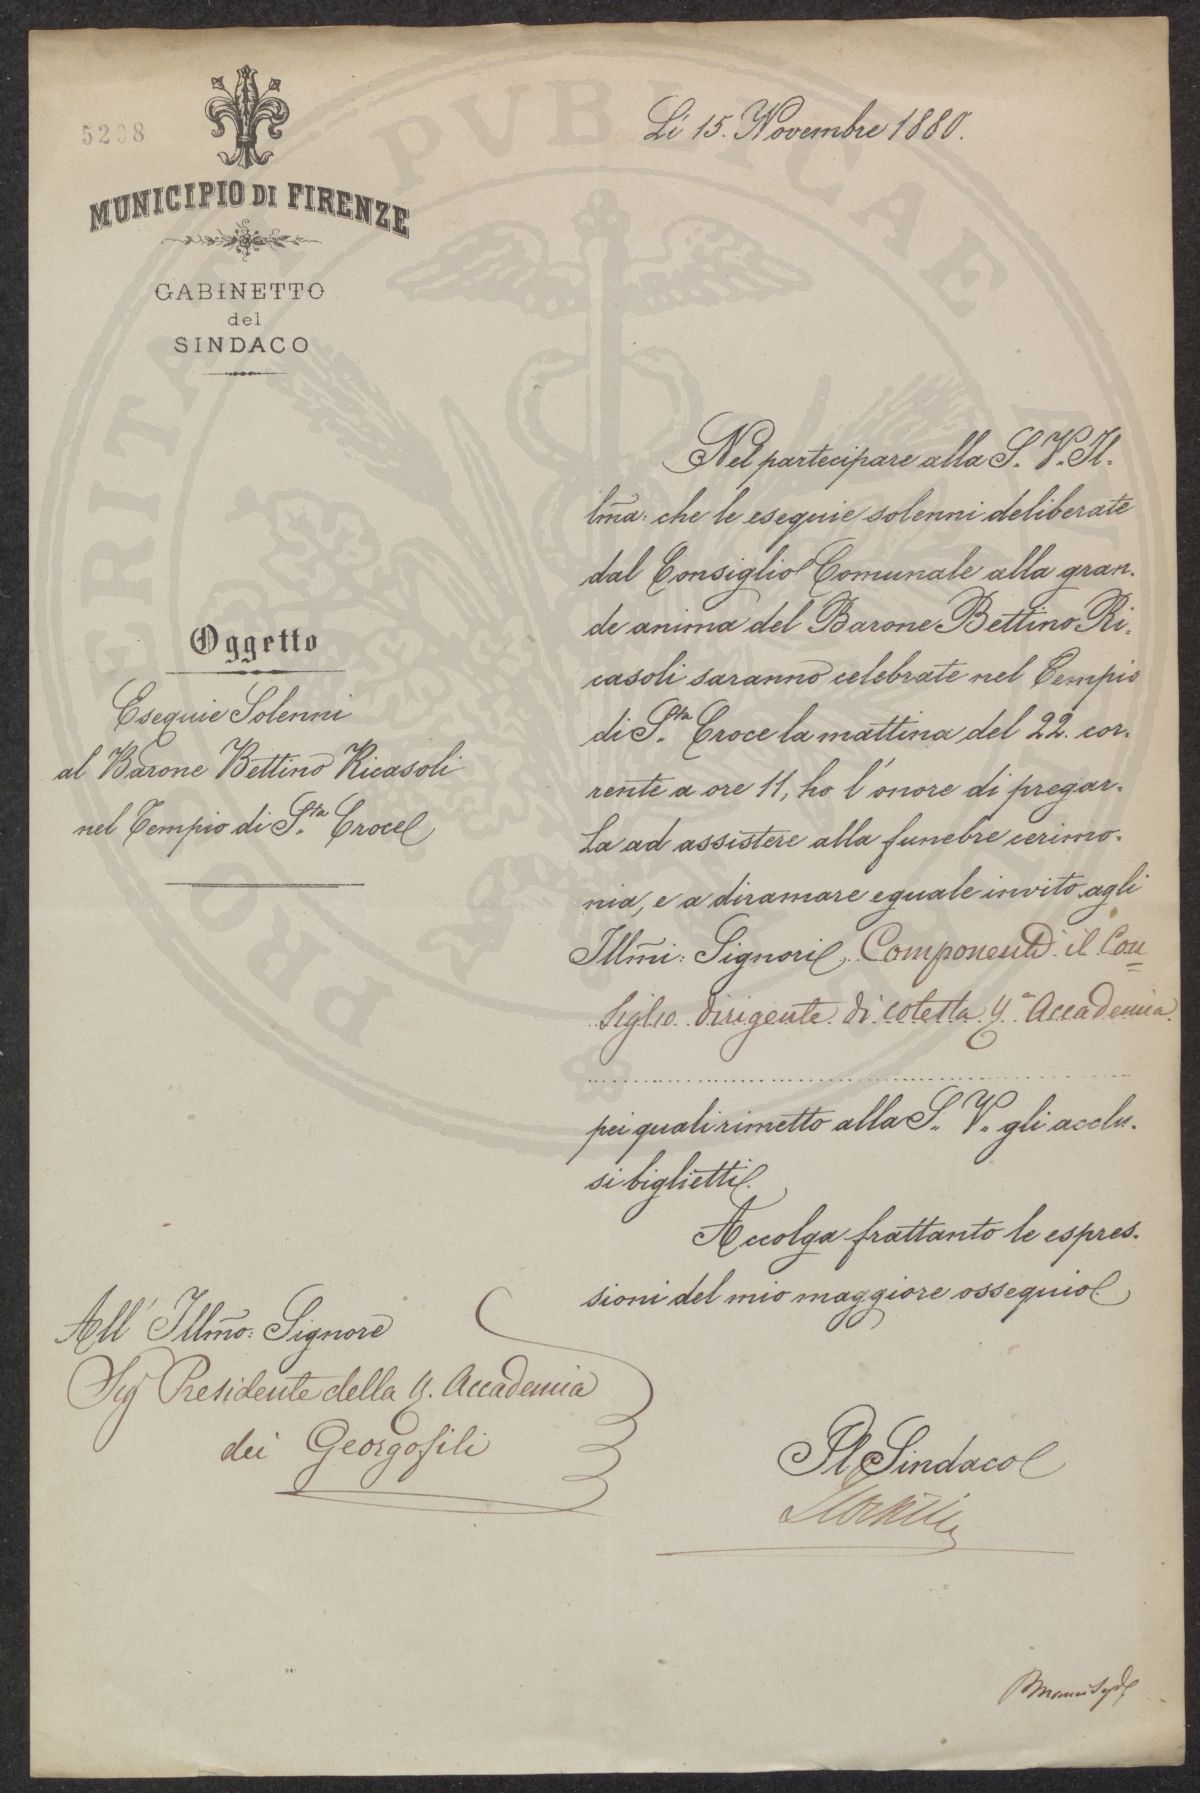 5208
MUNICIPIO DI FIRENZE
GABINETTO
del
SINDACO
Li 15. Novembre 1880.
Oggetto
Esequie Solenni
al Barone Bettino Ricasoli
nel Tempio di S.ta Croce
Nel partecipare alla S. V. Il-
lma: che le esequie solenni deliberate
dal Consiglio Comunale alla gran-
de anima del Barone Bettino Ri-
casoli saranno celebrate nel Tempio
di S.ta Croce la mattina del 22. cor-
rente a ore 11, ho l'onore di pregar-
La ad assistere alla funebre cerimo-
nia, e a diramare eguale invito agli
Illmi: Signori Componenti il Con=
siglio dirigente di cotesta R.a Accademia
pei quali rimetto alla S. V. gli acclu-
si biglietti.
Accolga frattanto le espres-
sioni del mio maggiore ossequio
All' Illmo: Signore
Sig Presidente della R. Accademia
dei Georgofili
Il Sindaco
PRO VERITATE PVBLICAE